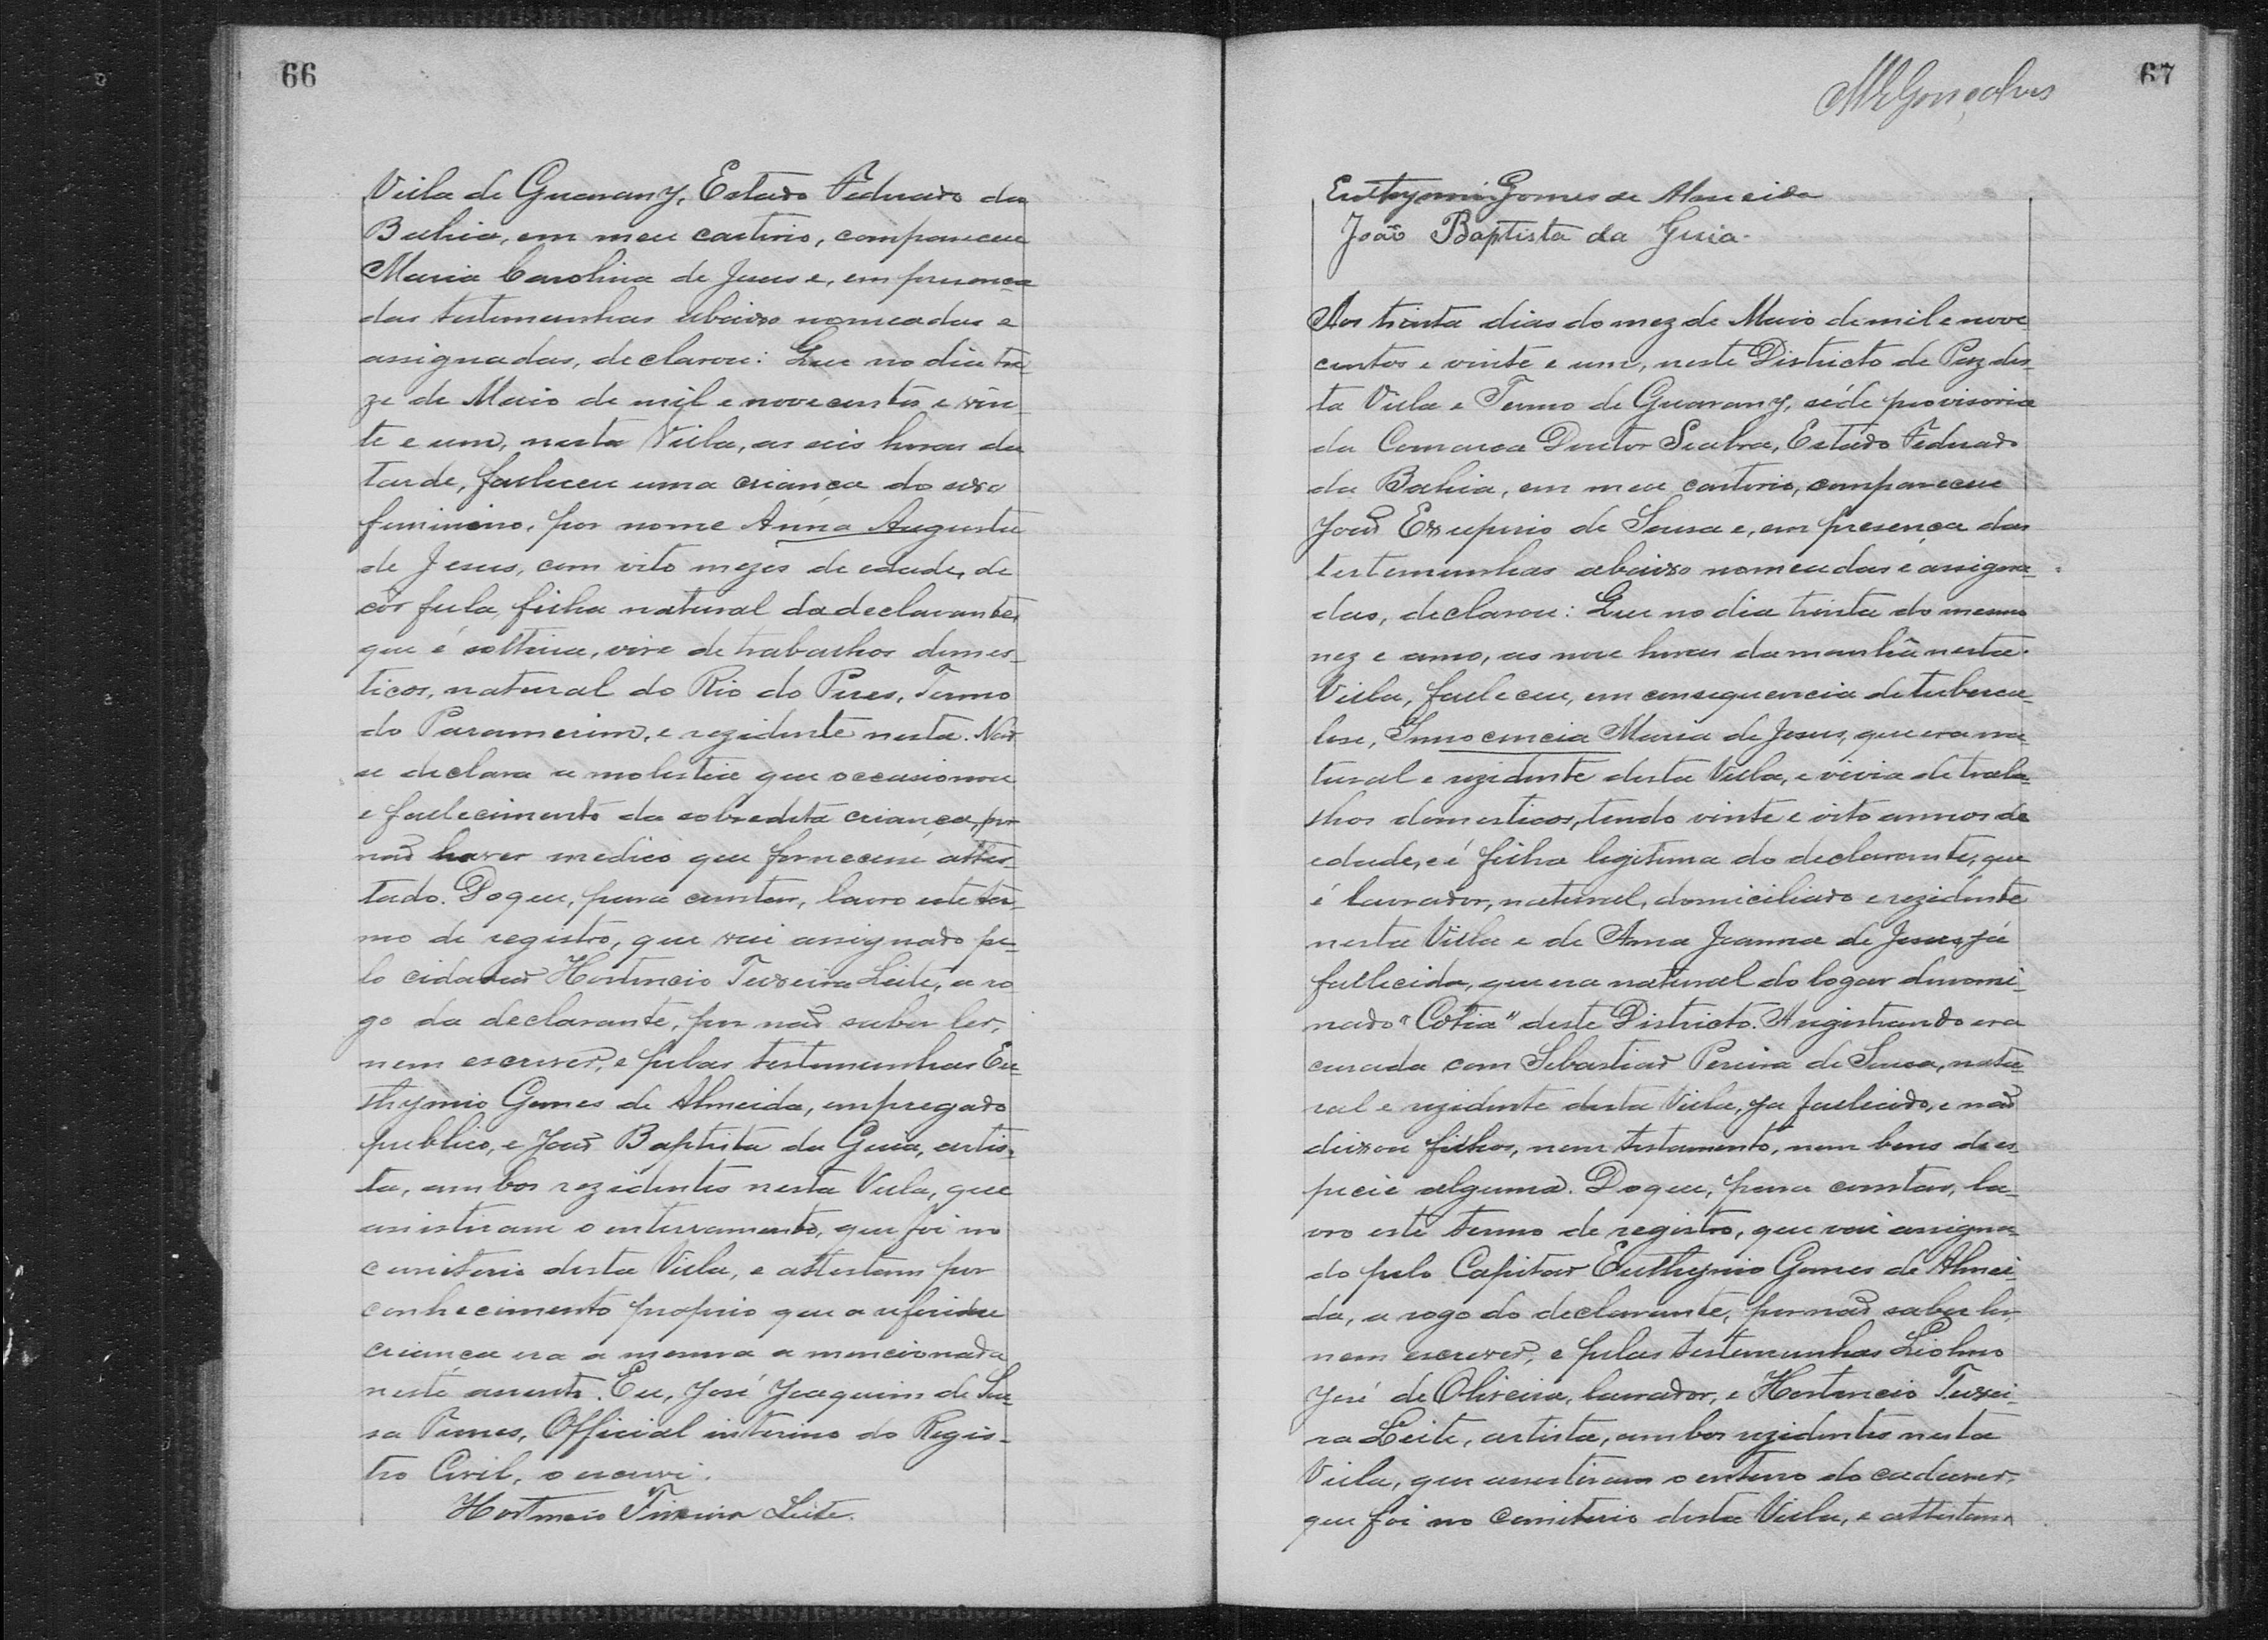 66
Villa de Guarany, Estado Federado da
Bahia, em meu cartorio, compareceu
Maria Carolina de Jesus e, em presença
das testemunhas abaixo nomeadas e
assignadas, declarou: Que no dia tre-
ze de Maio de mil e novecentos e vin-
te e um, nesta Villa, as seis horas da
tarde, falleceu uma criança do sexo
feminino, por nome Anna Augusta
de Jesus, com oito mezes de edade, de
côr fula, filha natural da declarante,
que é solteira, vive de trabalhos domes-
ticos, natural do Rio do Pires, Termo
do Paramerim, e rezidente nesta. Não
se declara a molestia que occasionou
o fallecimento da sobredita criança, por
não haver medico que fornecesse attes-
tado. Do que, para constar, lavro este ter-
mo de registro, que vai assignado pe-
lo cidadão Hortencio Teixeira Leite, a ro-
go da declarante, por não saber ler,
nem escrever, e pelas testemunhas Eu-
thymio Gomes de Almeida, empregado
publico, e João Baptista da Guia, artis-
ta, ambos rezidentes nesta Villa, que
assistiram o enterramento, que foi no
cemiterio desta Villa, e attestam por
conhecimento proprio que a referida
criança era a mesma a mencionada
neste assento. Eu, José Joaquim de Sou-
sa Official interino do Regis-
tro Civil, o escrevi.
Hortencio Teixeira Leite.
67
Gonçalves
Euthymio Gomes de Almeida
João Baptista da Guia.
Aos trinta dias do mez de Maio de mil e nove
centos e vinte e um, neste Districto de Paz des-
ta Villa e Termo de Guarany, séde provisoria
da Comarca Doutor Seabra, Estado Federado
da Bahia, em meu cartorio, compareceu
João Exuperio de Sousa e, em presença das
testemunhas abaixo nomeadas e assigna-
das, declarou: Que no dia trinta do mesmo
mez e anno, as nove horas da manhã nesta
Villa, falleceu, em consequencia de tubercu-
lose, Innocencia Maria de Jesus, que era na-
tural e rezidente desta Villa, e vivia de traba-
lhos domesticos, tendo vinte e oito annos de
edade, e é filha legitima do declarante, que
é lavrador, natural, domiciliado e rezidente
nesta Villa e de Anna Joanna de Jesus, já
fallecida, que era natural do logar denomi-
nado "Cotia" deste Districto. A registrando era
casada com Sebastião Pereira de Sousa, natu-
ral e rezidente desta Villa, ja fallecido, e não
deixou filhos, nem testamento, nem bens de es-
pecie alguma. Do que, para constar, la-
vro este termo de registro, que vai assigna-
do pelo Capitão Euthymio Gomes de Almei-
da, a rogo do declarante, por não saber ler,
nem escrever, e pelas testemunhas Liolino
José de Oliveira, lavrador, e Hortencio Teixei-
ra Leite, artista, ambos rezidentes nesta
Villa, que assistiram o enterro do cadaver,
que foi no Cemiterio desta Villa, e attestam